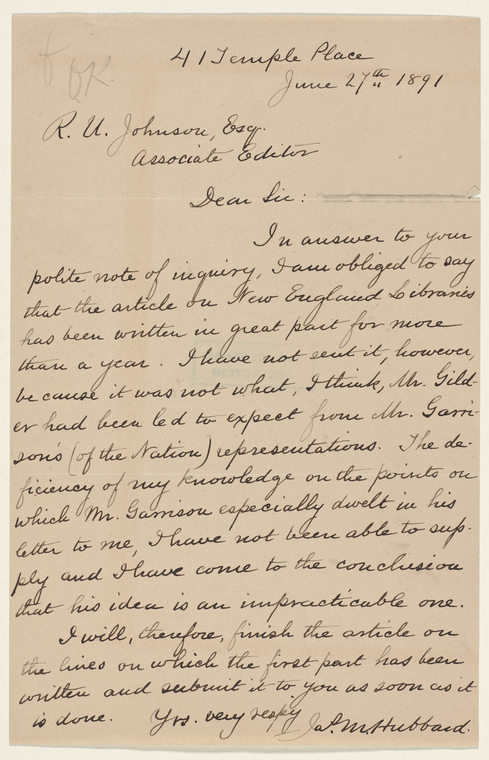 OK.
41 Temple Place
June 27th 1891
R. U. Johnson, Esq.
Associate Editor
Dear Sir:
In answer to your
polite note of inquiry, I am obliged to say
that the article on New England Libraries
has been written in great part for more
than a year. I have not sent it, however,
because it was not what, I think, Mr. Gild-
er had been led to expect from Mr. Garri-
son's (of the Nation) representations. The de-
ficiency of my knowledge on the points on
which Mr. Garrison especially dwelt in his
letter to me, I have not been able to sup-
ply and I have come to the conclusion
that his idea is an impracticable one.
I will, therefore, finish the article on
the lines on which the first part has been
written and submit it to you as soon as it
is done. Yrs. very respy
Jas. M. Hubbard.